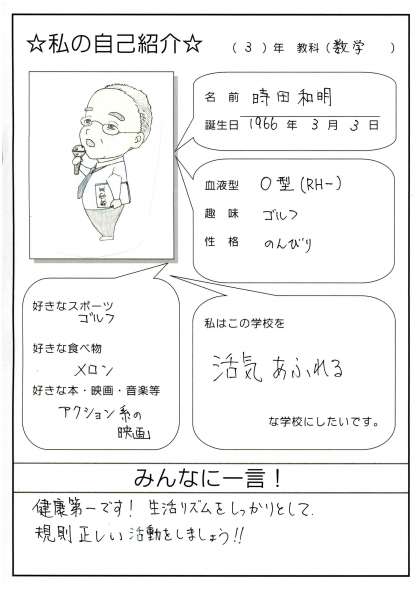 ☆私の自己紹介☆
( 3 ) 年 教科 ( 数学 )
名 前 時田 和明
誕生日 1966 年 3 月 3 日
血液型 O型 (RH-)
趣 味 ゴルフ
性 格 のんびり
好きなスポーツ
ゴルフ
好きな食べ物
メロン
好きな本・映画・音楽等
アクション系の
映画
私はこの学校を
活気あふれる
な学校にしたいです。
みんなに一言！
健康第一です! 生活リズムをしっかりとして、
規則正しい活動をしましょう!!